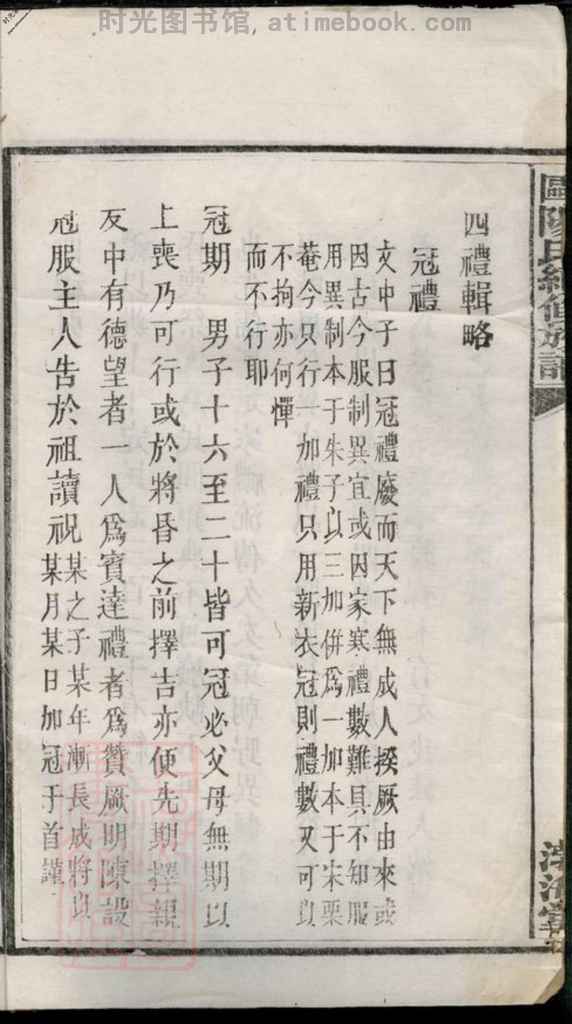 时光图书馆,atimebook.com
歐陽氏續修族譜
四禮輯略
冠禮
文中子曰冠禮廢而天下無成人揆厥由來或
因古今服制異宜或因家寒禮數難具不知服
用異制本于朱子以三加併爲一加本于宋栗
菴今只行一加禮只用新衣冠則禮數又可以
不拘亦何憚
而不行耶
冠期 男子十六至二十皆可冠必父母無期以
上喪乃可行或於將昏之前擇吉亦便先期擇親
友中有德望者一人爲賓達禮者爲贊厥明陳設
冠服主人告於祖讀祝某之子某年漸長成將以
某月某日加冠于首謹